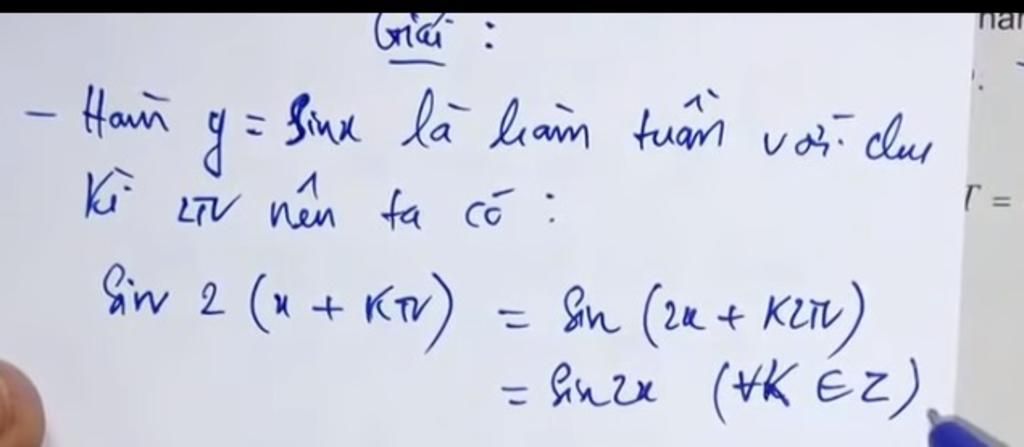 Giải:
- Hàm y = sinx là hàm tuần với chu
kì 2π nên ta có:
sin 2 (x + kπ) = sin (2x + k2π)
= sin2x (∀k ∈ Z)
T =